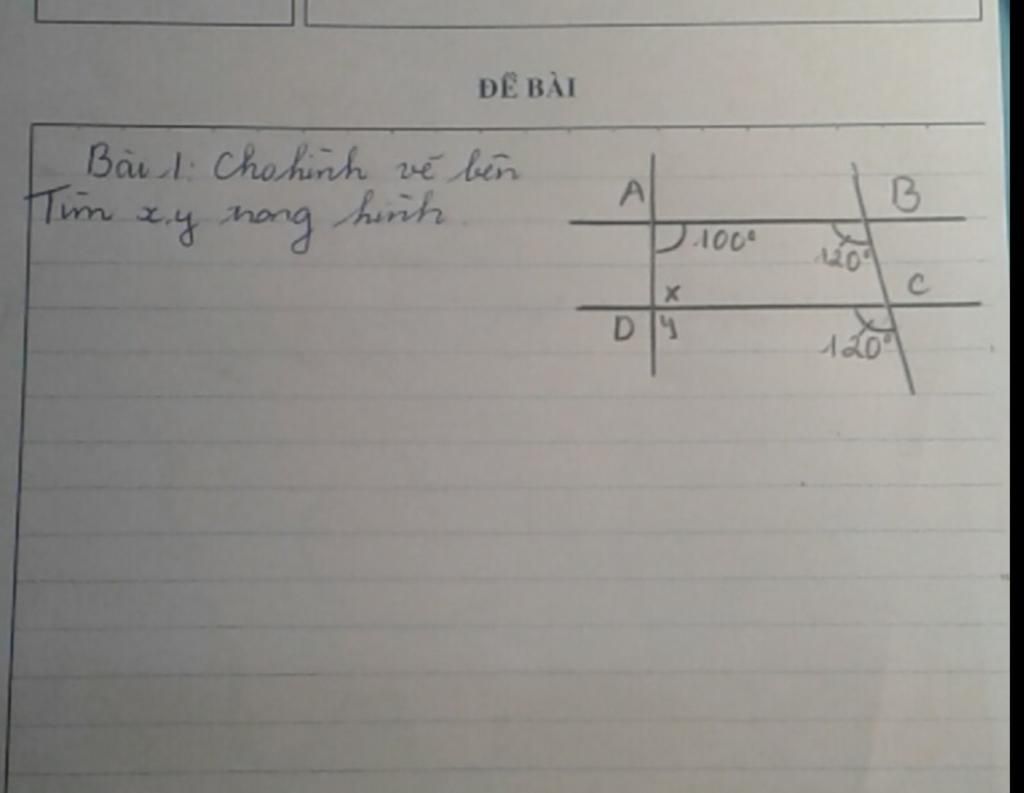 ĐỀ BÀI
Bài 1: Cho hình vẽ bên
Tìm x.y trong hình.
A
B
100°
120°
x
C
D
y
120°